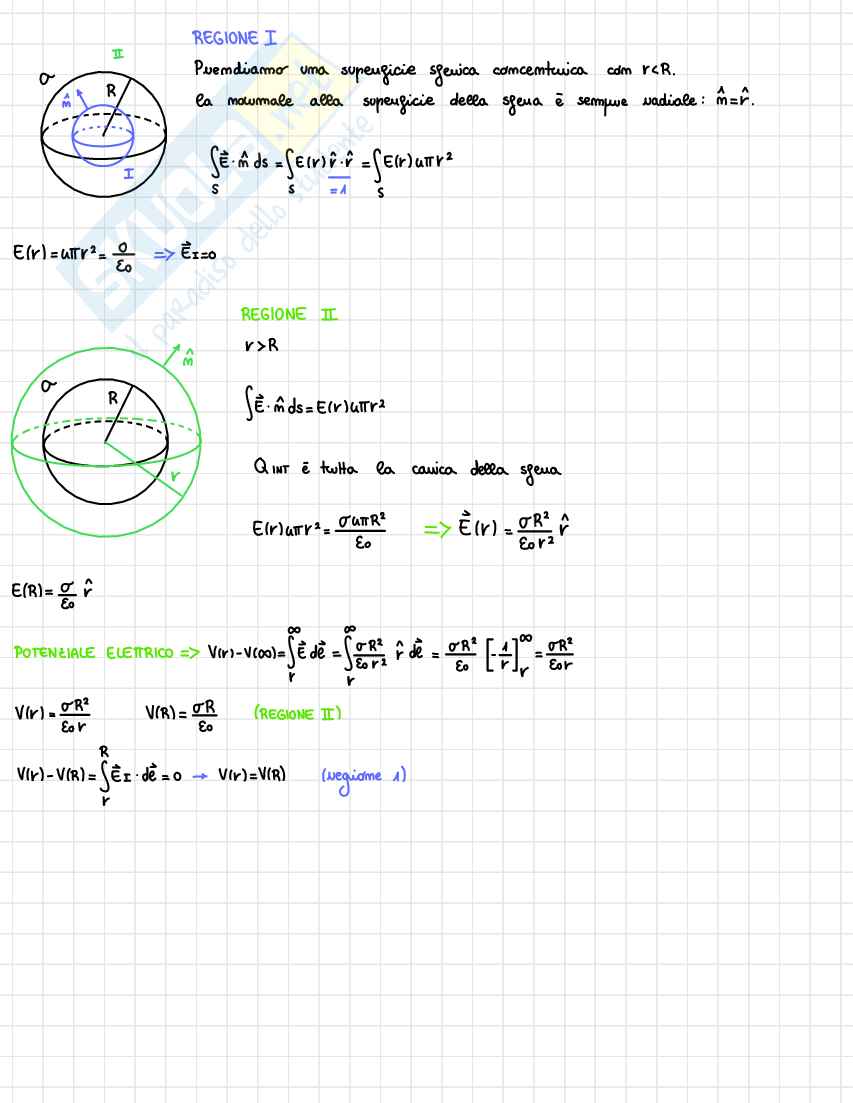 REGIONE I
II
σ
Prendiamo una superficie sferica concentrica con r<R.
R
n̂
la normale alla superficie della sfera è sempre radiale: n̂=r̂.
I
∫S E⃗·n̂ ds = ∫S E(r) r̂·r̂ = ∫S E(r)4πr²
=1
E(r)=4πr²= 0/ε0 => E⃗I=0
SKUOLA.net
il paradiso dello studente
REGIONE II
r>R
n̂
σ
R
∫E⃗·n̂ds=E(r)4πr²
QINT è tutta la carica della sfera
r
E(r)4πr²= σ4πR²/ε0 => E⃗(r) = σR²/ε0r² r̂
E(R)= σ/ε0 r̂
POTENZIALE ELETTRICO => V(r)-V(∞)=∫r∞ E⃗ dℓ⃗ = ∫r∞ σR²/ε0r² r̂ dℓ⃗ = σR²/ε0 [-1/r]r∞ = σR²/ε0r
V(r)= σR²/ε0r V(R)= σR/ε0 (REGIONE II)
V(r)-V(R)=∫rR E⃗I·dℓ⃗=0 → V(r)=V(R) (regione 1)